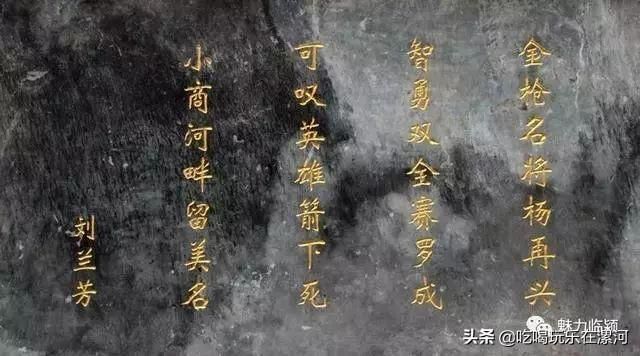 金枪名将杨再兴
智勇双全赛罗成
可叹英雄箭下死
小商河畔留美名
刘兰芳
魅力临颍
头条 @吃喝玩乐在漯河